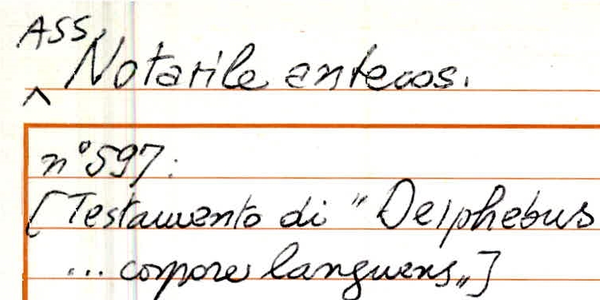 ASS.
^ Notarile antecos.
n° 597:
[Testamento di "Delphebus
... corpore languens"]